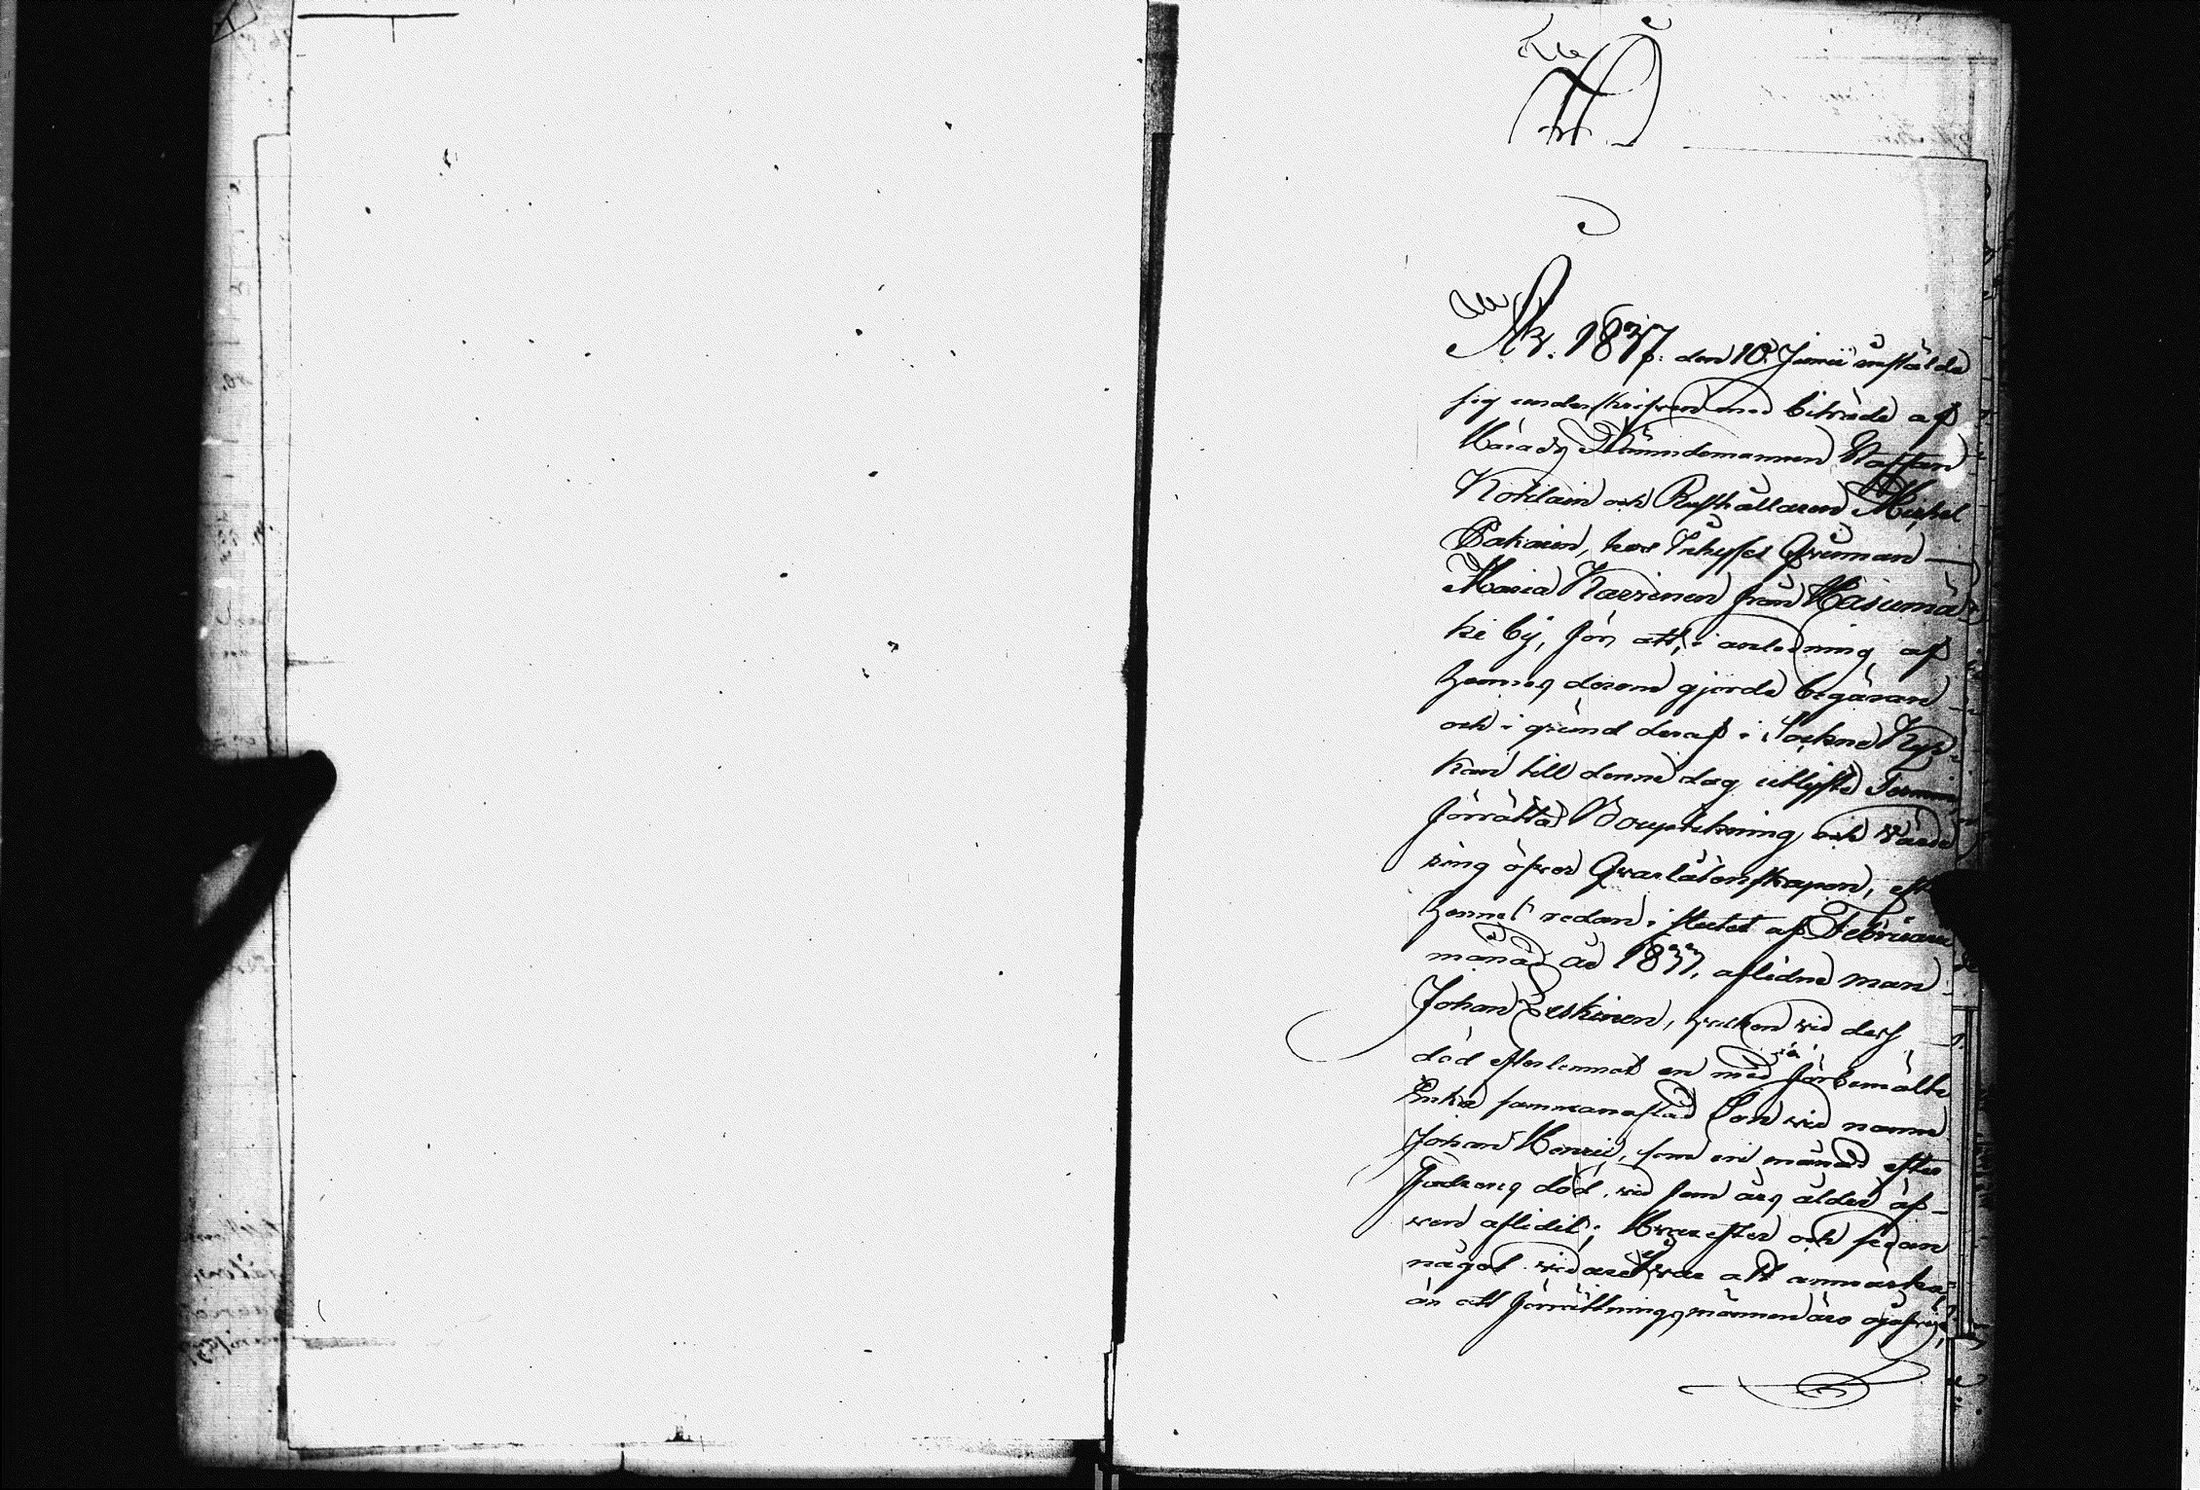 År 1837. den 10 Junii instälde
sig underskrifven med biträde af
Härads Nämndemannen Staffan
Koklain och Rusthållaren Mickel
Pakain, hos Inhyses Qvinnan
Maria Karrinen från Hasumä
ki by, för att, i anledning af
hennes derom gjorde begäran
och i grund deraf i Sockne Kyr-
kan till denne dag utlyste Termin
förrätta Bouptekning och värde
ring öfver Qvarlåtenskapen, efter
hennes redan i slutet af Februarii
månad år 1833, aflidne man
Johan Leskinen, hvilken vid dess
död efterlemnat en med förbemälte
Enka sammanaflad Son vid namn
Johan Henric, som en månad efter
Fadrens död, vid fem års ålder äf-
ven aflidit; Hvarefter och sedan
något vidare ej var att anmärka,
än att förrättningsmännen äro ojäfvige,